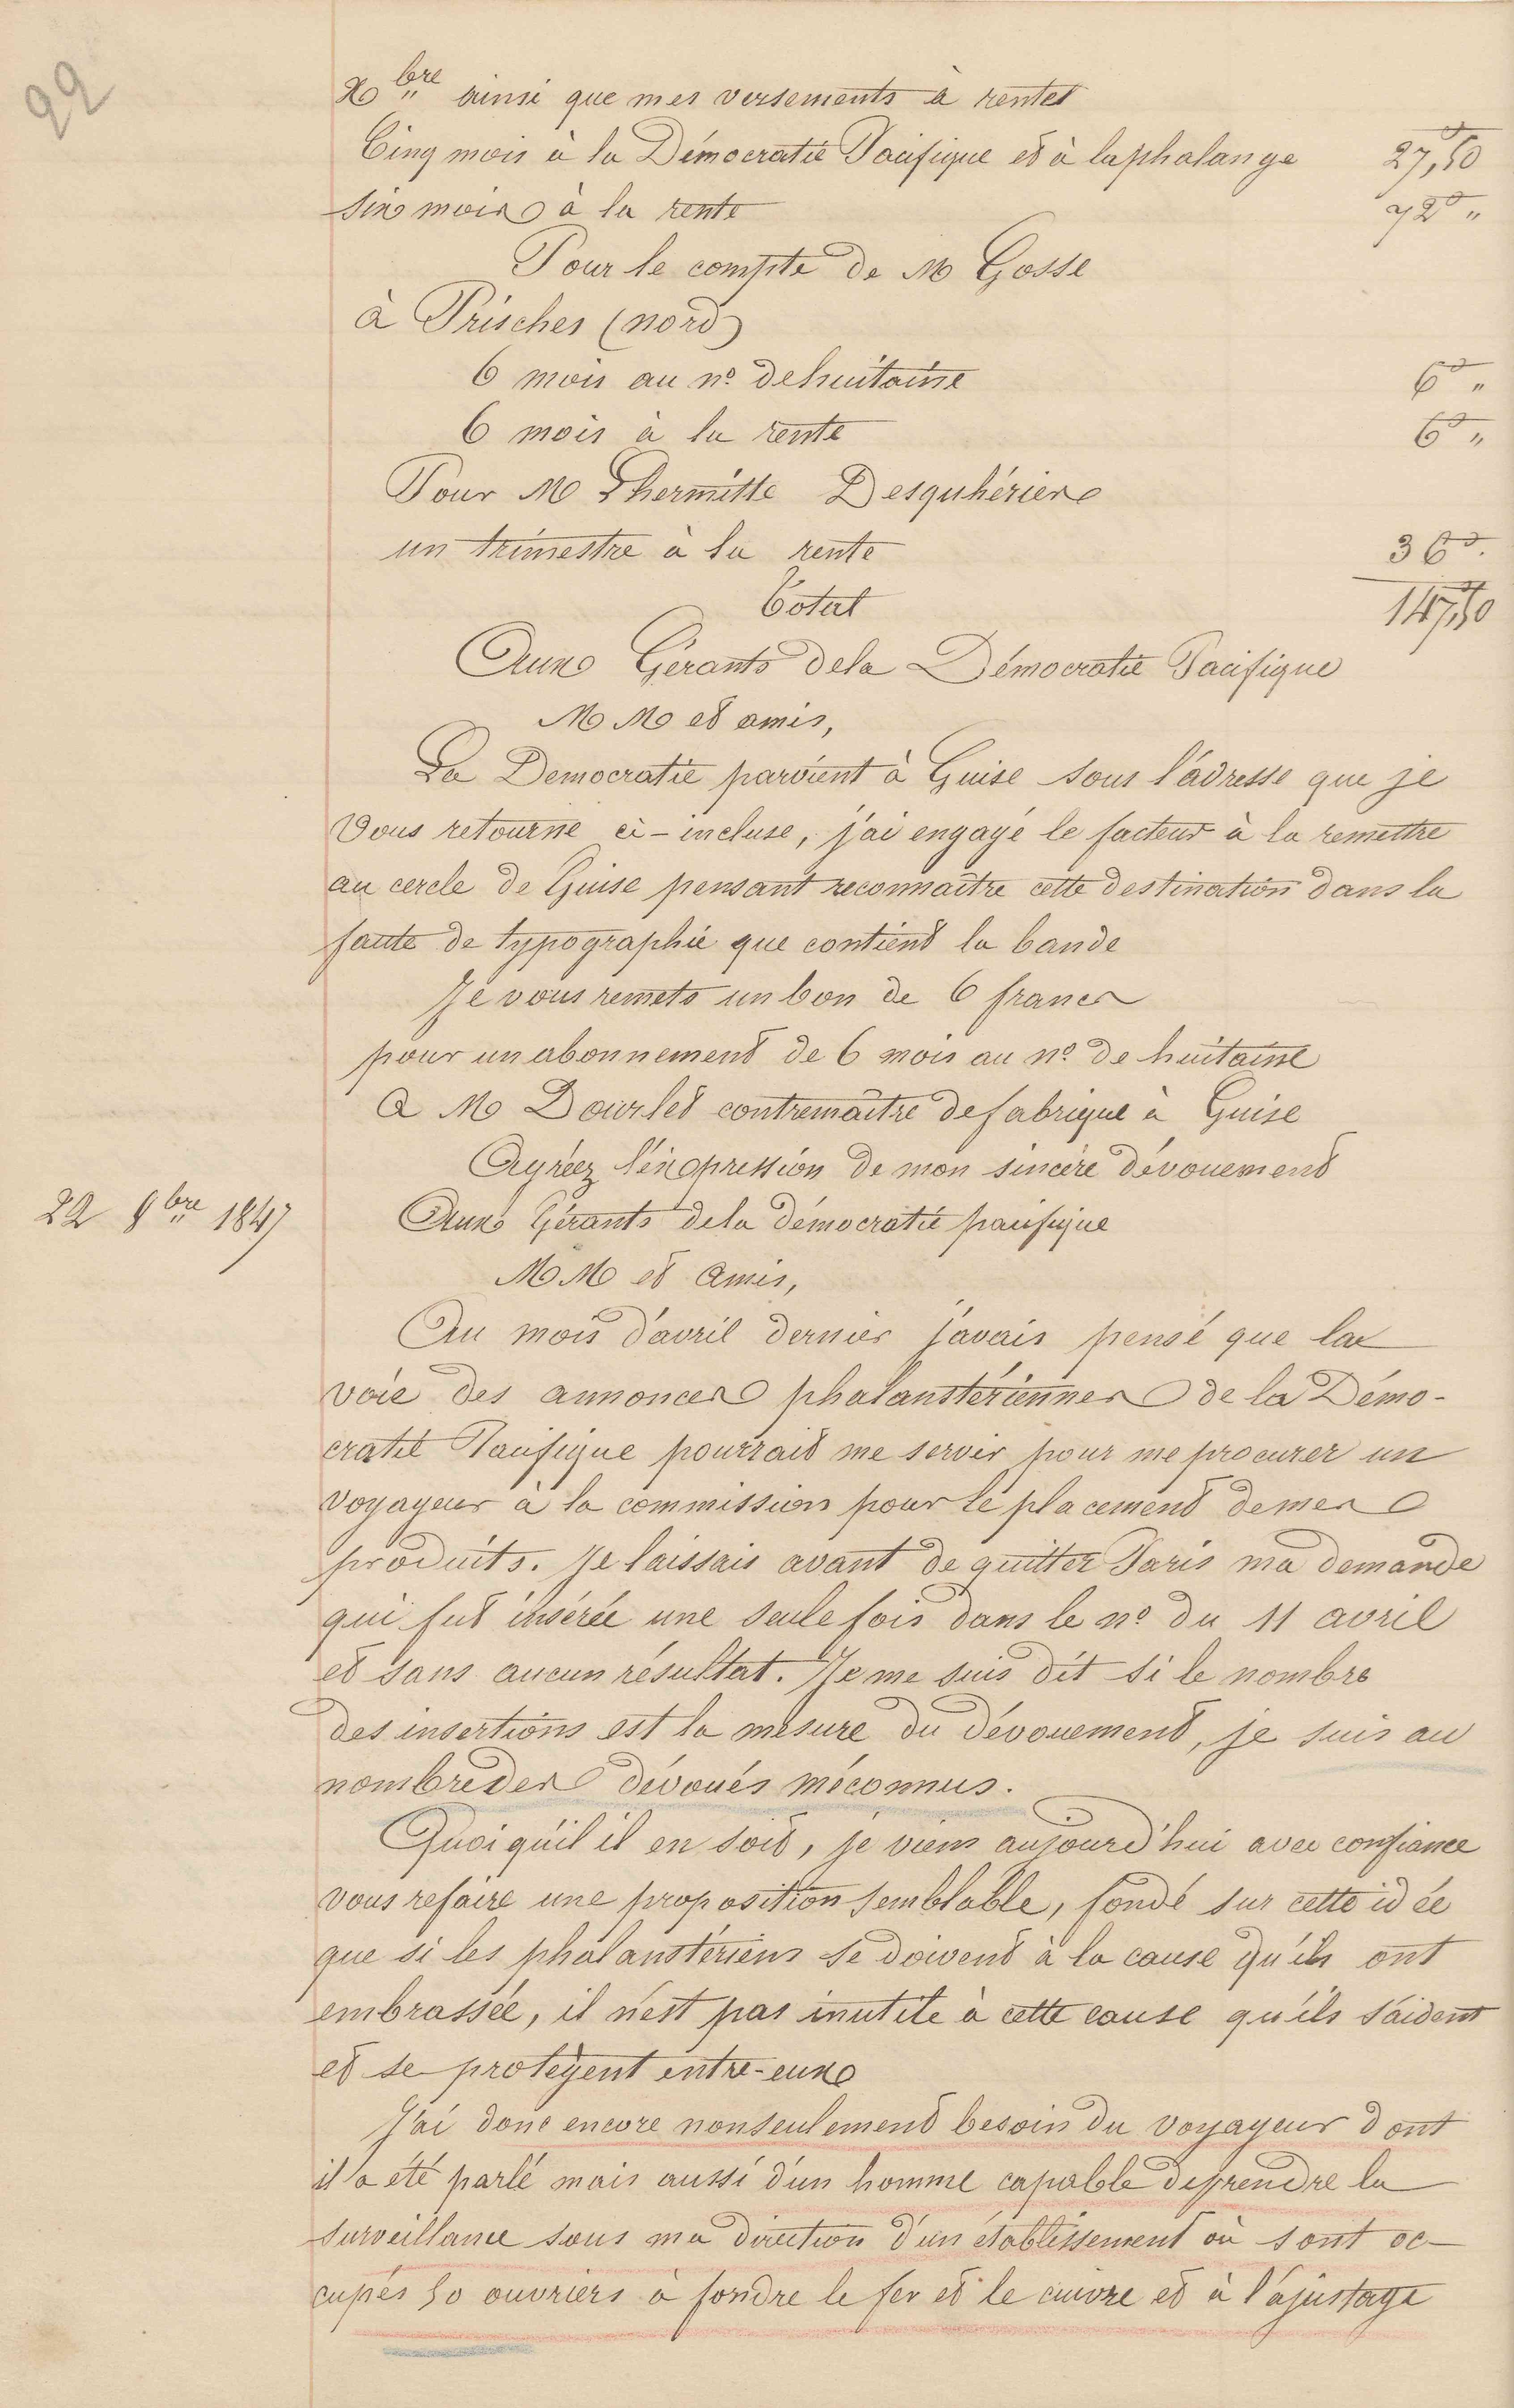 22
Xbre ainsi que mes versements à rentes
Cinq mois à la Démocratie Pacifique et à la phalange 27,50
Six mois à la rente 72 "
Pour le compte de M Gosse
à Prisches (nord)
6 mois au no de huitaine 6 "
6 mois à la rente 6 "
Pour M Lhermitte Desquhérière
un trimestre à la rente 36
Total 147,50
Aux Gérants de la Démocratie Pacifique
MM et amis,
La Democratie parvient à Guise sous l'adresse que je
vous retourne ci-incluse, j'ai engagé le facteur à la remettre
au cercle de Guise pensant reconnaître cette destination dans la
faute de typographie que contient la bande
Je vous remets un bon de 6 francs
pour un abonnement de 6 mois au no de huitaine
A M Dourlet contremaître de fabrique à Guise
Agréez l'expression de mon sincère dévouement
22 8bre 1847 Aux Gérants de la démocratie pacifique
MM et Amis,
Au mois d'avril dernier j'avais pensé que la
voie des annonces phalanstériennes de la Démo-
cratie Pacifique pourrait me servir pour me procurer un
voyageur à la commission pour le placement de mes
produits. Je laissais avant de quitter Paris ma demande
qui fut insérée une seule fois dans le no du 11 avril
et sans aucun résultat. Je me suis dit si le nombre
des insertions est la mesure du dévouement, je suis au
nombre des dévoués méconnus.
Quoiqu'il il en soit, je viens aujourd'hui avec confiance
vous refaire une proposition semblable, fondé sur cette idée
que si les phalanstériens se doivent à la cause qu'ils ont
embrassée, il n'est pas inutile à cette cause qu'ils s'aident
et se protègent entre-eux
J'ai donc encore non seulement besoin du voyageur dont
il a été parlé mais aussi d'un homme capable de prendre la
surveillance sous ma direction d'un établissement où sont oc-
cupés 50 ouvriers à fondre le fer et le cuivre et à l'ajustage